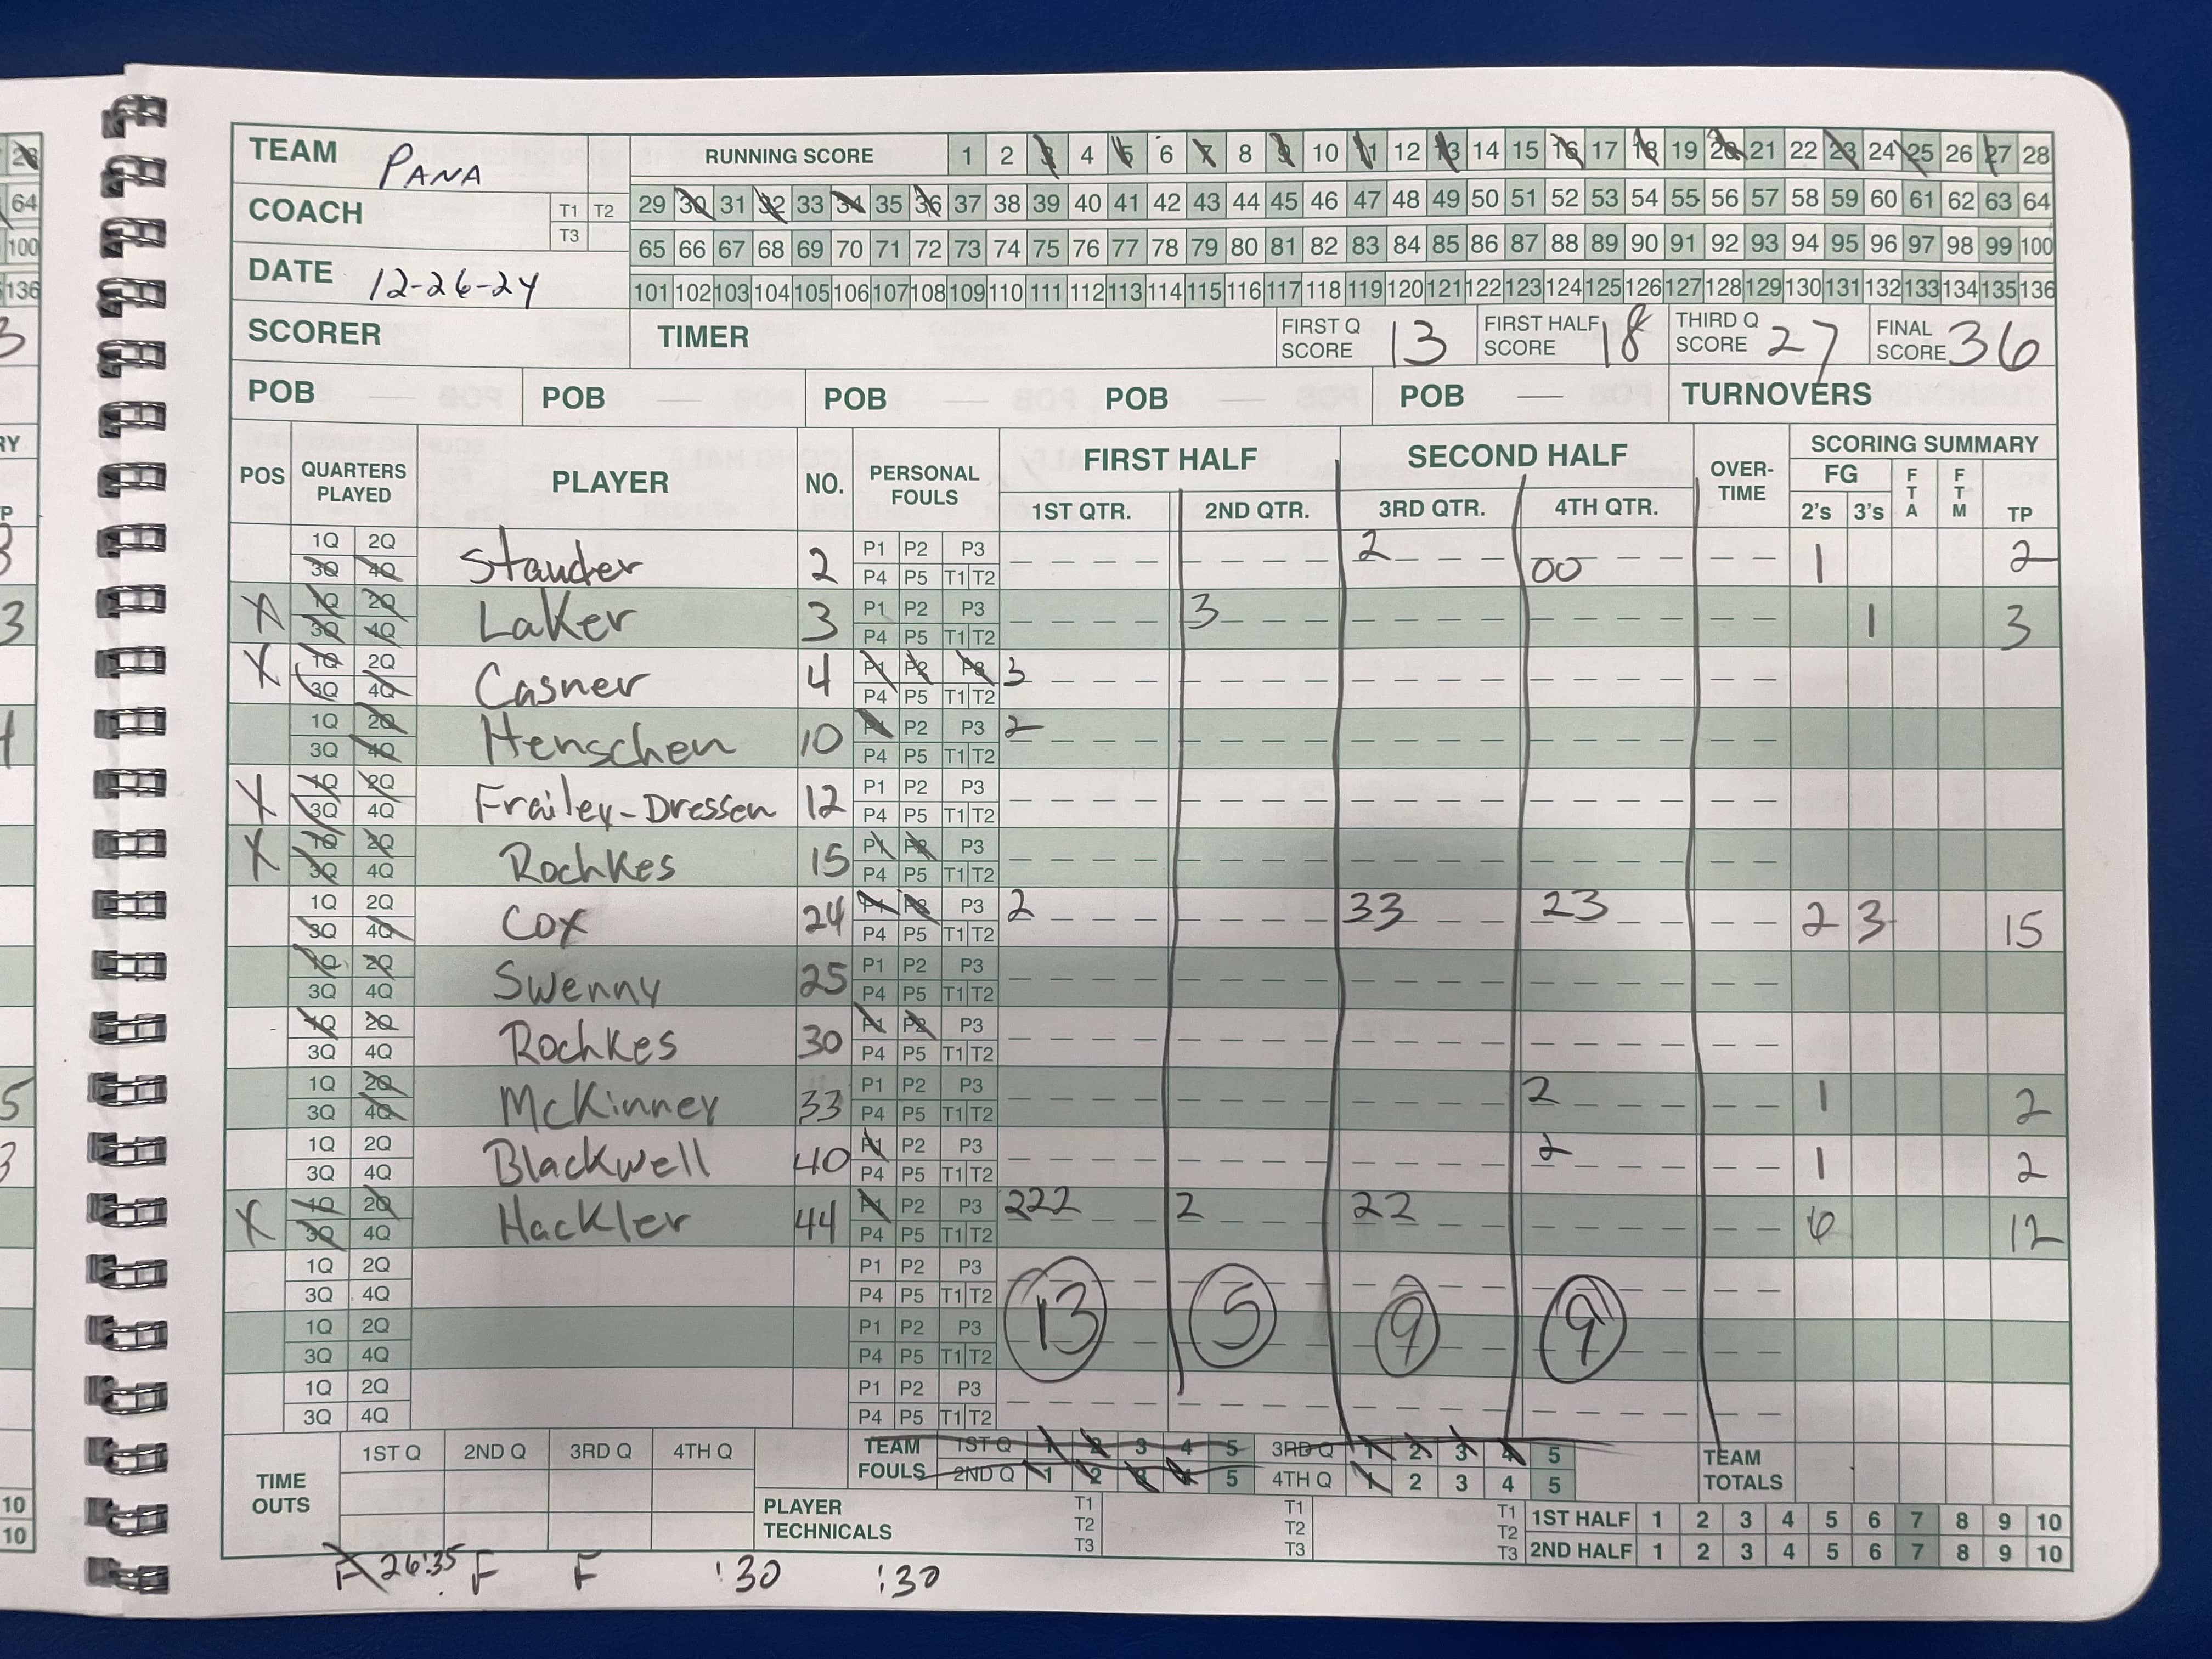 TEAM PANA
RUNNING SCORE 1 2 3 4 5 6 7 8 9 10 11 12 13 14 15 16 17 18 19 20 21 22 23 24 25 26 27 28
COACH T1 T2 T3
29 30 31 32 33 34 35 36 37 38 39 40 41 42 43 44 45 46 47 48 49 50 51 52 53 54 55 56 57 58 59 60 61 62 63 64
65 66 67 68 69 70 71 72 73 74 75 76 77 78 79 80 81 82 83 84 85 86 87 88 89 90 91 92 93 94 95 96 97 98 99 100
DATE 12-26-24
101 102 103 104 105 106 107 108 109 110 111 112 113 114 115 116 117 118 119 120 121 122 123 124 125 126 127 128 129 130 131 132 133 134 135 136
SCORER TIMER FIRST Q SCORE 13 FIRST HALF SCORE 18 THIRD Q SCORE 27 FINAL SCORE 36
POB POB POB POB POB TURNOVERS
POS QUARTERS PLAYED PLAYER NO. PERSONAL FOULS FIRST HALF SECOND HALF OVER-TIME SCORING SUMMARY
1ST QTR. 2ND QTR. 3RD QTR. 4TH QTR. FG 2's 3's FTA FTM TP
1Q 2Q Stauder 2 P1 P2 P3 2 1 2
3Q 4Q P4 P5 T1 T2 00
X 1Q 2Q Laker 3 P1 P2 P3 3 1 3
3Q 4Q P4 P5 T1 T2
X 1Q 2Q Casner 4 P1 P2 P3 3
3Q 4Q P4 P5 T1 T2
1Q 2Q Henschen 10 P1 P2 P3 2
3Q 4Q P4 P5 T1 T2
X 1Q 2Q Frailey-Dressen 12 P1 P2 P3
3Q 4Q P4 P5 T1 T2
X 1Q 2Q Rochkes 15 P1 P2 P3
3Q 4Q P4 P5 T1 T2
1Q 2Q Cox 24 P1 P2 P3 2 33 23 2 3 15
3Q 4Q P4 P5 T1 T2
1Q 2Q Swenny 25 P1 P2 P3
3Q 4Q P4 P5 T1 T2
1Q 2Q Rochkes 30 P1 P2 P3
3Q 4Q P4 P5 T1 T2
1Q 2Q McKinney 33 P1 P2 P3 2 1 2
3Q 4Q P4 P5 T1 T2
1Q 2Q Blackwell 40 P1 P2 P3 2 1 2
3Q 4Q P4 P5 T1 T2
X 1Q 2Q Hackler 44 P1 P2 P3 222 2 22 6 12
3Q 4Q P4 P5 T1 T2
1Q 2Q P1 P2 P3
3Q 4Q P4 P5 T1 T2
13 5 9 9
1Q 2Q P1 P2 P3
3Q 4Q P4 P5 T1 T2
1Q 2Q P1 P2 P3
3Q 4Q P4 P5 T1 T2
TIME OUTS 1ST Q 2ND Q 3RD Q 4TH Q TEAM FOULS 1ST Q 1 2 3 4 5 3RD Q 1 2 3 4 5 TEAM TOTALS
2ND Q 1 2 3 4 5 4TH Q 1 2 3 4 5
PLAYER TECHNICALS T1 T2 T3 T1 T2 T3 T1 T2 T3
1ST HALF 1 2 3 4 5 6 7 8 9 10
2ND HALF 1 2 3 4 5 6 7 8 9 10
F 26:35 F F :30 :30